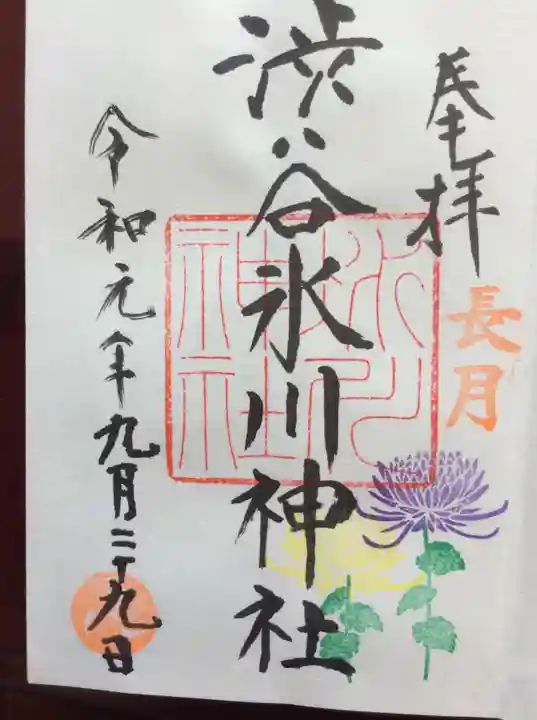 奉拝
長月
渋谷氷川神社
氷川神社
令和元年九月二十九日